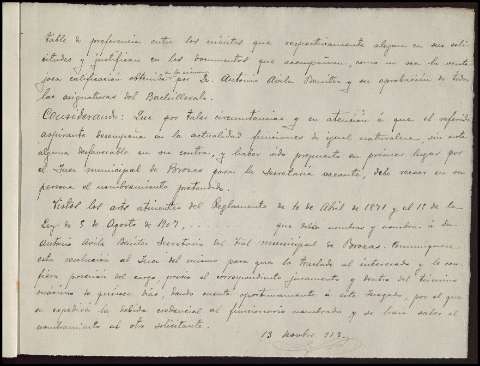 table de preferencia entre los méritos que respectivamente alegan en sus soli-
citudes y justifican en los documentos que acompañan, como no sea la venta-
josa calificación obtenida por D. Antonio Avila Benitez y su aprobación de todas
las asignaturas del Bachillerato.
Considerando: Que por tales circunstancias y en atención á que el referido
aspirante desempeña en la actualidad funciones de igual naturaleza, sin nota
alguna desfavorable en su contra, y haber sido propuesto en primer lugar por
el Juez municipal de Brozas para la Secretaria vacante, debe recaer en su
persona el nombramiento pretendido.
Vistos los arts atinentes del Reglamento de 10 de Abril de 1871 y el 12 de la
Ley de 5 de Agosto de 1907, . . . . . . . . que debia nombrar y nombra á dn
Antonio Avila Benitez Secretario del municipal de Brozas. Comuniquese
esta resolución al Juez del mismo para que la traslade al interesado y le con-
fiera posesión del cargo previo el correspondiente juramento y dentro del término
máximo de quince dias, dando cuenta oportunamente á este Juzgado, por el que
se expedirá la debida credencial al funcionario nombrado y se hará saber el
nombramiento al otro solicitante.
13 novbre 913